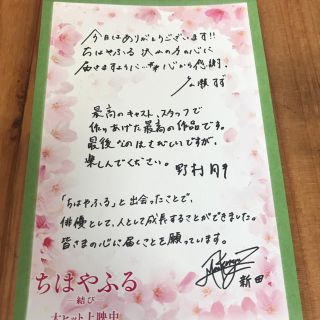 今日はありがとうございます!!
ちはやふる 沢山の方の心に
届きますように…心から感謝.
広瀬すず
最高のキャスト、スタッフで
作りあげた最高の作品です。
最後なのはさびしいですが、
楽しんでください。 野村周平
「ちはやふる」と出会ったことで、
俳優として、人として成長することができました。
皆さまの心に届くことを願っています。
新田
ちはやふる
結び
大ヒット上映中